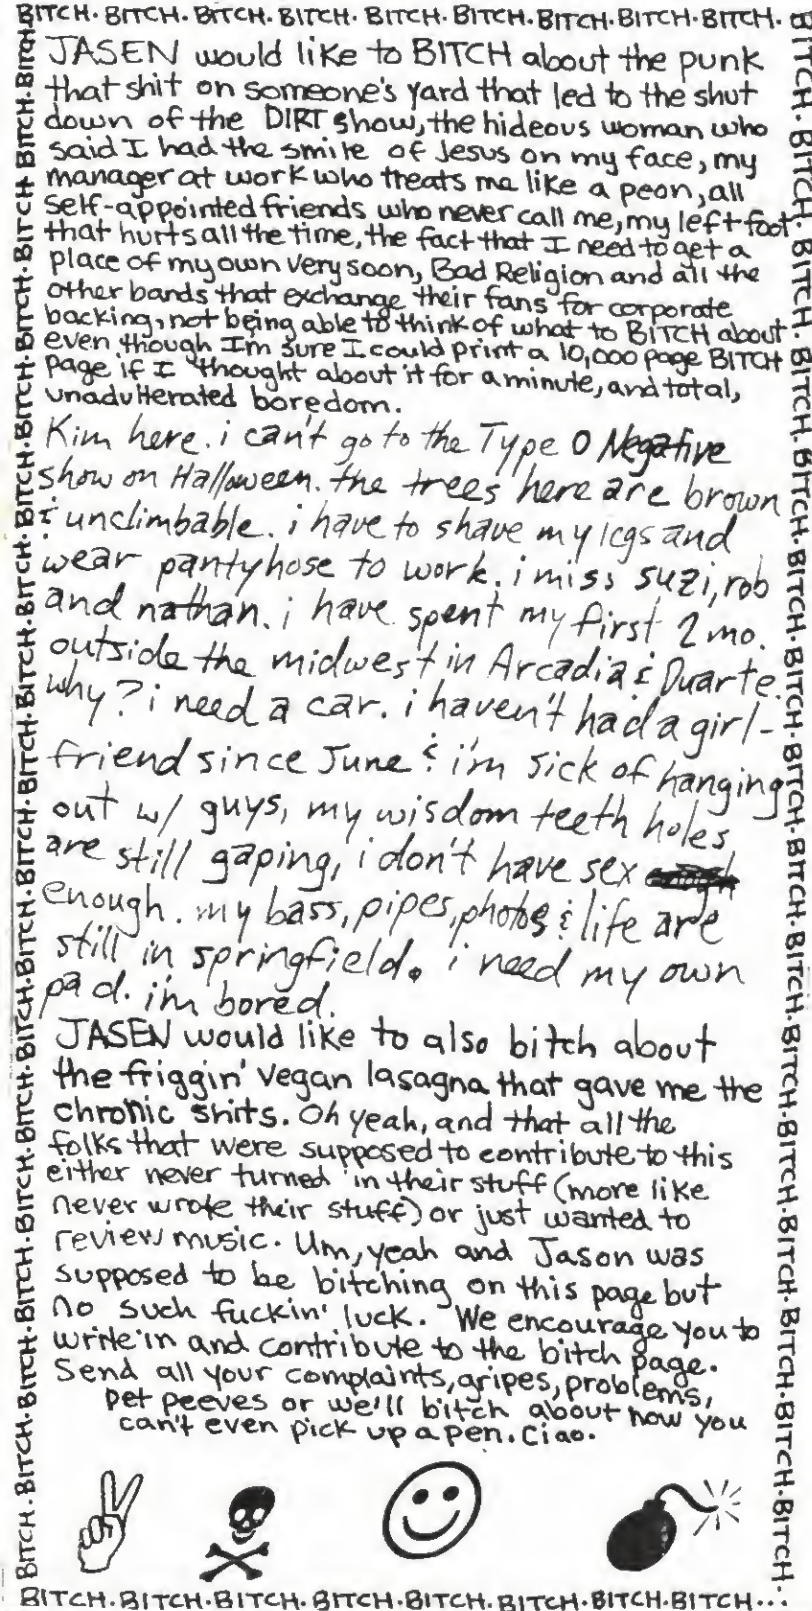 BITCH. BITCH. BITCH. BITCH. BITCH. BITCH. BITCH. BITCH.
JASEN would like to BITCH about the punk
that shit on someone's yard that led to the shut
down of the DIRT show, the hideous woman who
said I had the smile of Jesus on my face, my
manager at work who treats me like a peon, all
self-appointed friends who never call me, my left foot
that hurts all the time, the fact that I need to get a
place of my own very soon, Bad Religion and all the
other bands that exchange their fans for corporate
backing, not being able to think of what to BITCH about
even though Im sure I could print a 10,000 page BITCH
page if I thought about it for a minute, and total,
unadulterated boredom.
Kim here. i can't go to the Type O Negative
show on Halloween. the trees here are brown
& unclimbable. i have to shave my legs and
wear pantyhose to work. i miss suzi, rob
and nathan. i have spent my first 2 mo.
outside the midwest in Arcadia & Duarte.
why? i need a car. i haven't had a girl-
friend since June & i'm sick of hanging
out w/ guys, my wisdom teeth holes
are still gaping, i don't have sex
enough. my bass, pipes, photos & life are
still in springfield. i need my own
pad. i'm bored.
JASEN would like to also bitch about
the friggin' vegan lasagna that gave me the
chronic shits. Oh yeah, and that all the
folks that were supposed to contribute to this
either never turned in their stuff (more like
never wrote their stuff) or just wanted to
review music. Um, yeah and Jason was
supposed to be bitching on this page but
no such fuckin' luck. We encourage you to
write in and contribute to the bitch page.
Send all your complaints, gripes, problems,
pet peeves or we'll bitch about how you
can't even pick up a pen. Ciao.
BITCH. BITCH. BITCH. BITCH. BITCH. BITCH. BITCH. BITCH...
BITCH. BITCH. BITCH. BITCH. BITCH. BITCH. BITCH. BITCH. BITCH. BITCH. BITCH. BITCH. BITCH. BITCH. BITCH. BITCH. BITCH
BITCH. BITCH. BITCH. BITCH. BITCH. BITCH. BITCH. BITCH. BITCH. BITCH. BITCH. BITCH. BITCH. BITCH. BITCH. BITCH.